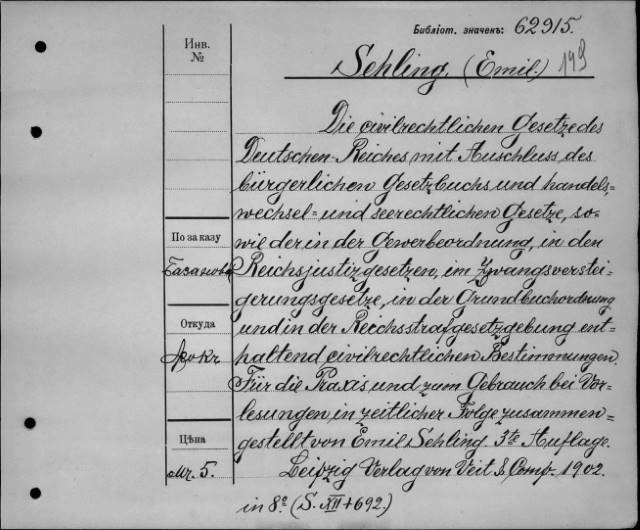 Библіот. значекъ: 62915.
Инв.
№
Sehling, (Emil.) 198
Die civilrechtlichen Gesetze des
Deutschen Reiches mit Auschluss des
bürgerlichen Gesetzbuchs und handels,=
wechsel= und seerechtlichen Gesetze, so=
По заказу
wie der in der Gewerbeordnung, in den
Базанова
Reichsjustizgesetzen, im Zwangsverstei=
gerungsgesetze, in der Grundbuchordnung
Откуда
und in der Reichsstrafgesetzgebung ent=
haltend civilrechtlichen Bestimmungen.
Für die Praxis und zum Gebrauch bei Vor=
lesungen in zeitlicher Folge zusammen=
Цѣна
gestellt von Emil Sehling. 3te Auflage.
Mr. 5.
Leipzig Verlag von Veit & Comp. 1902.
in 8.º (S. XII + 692.)